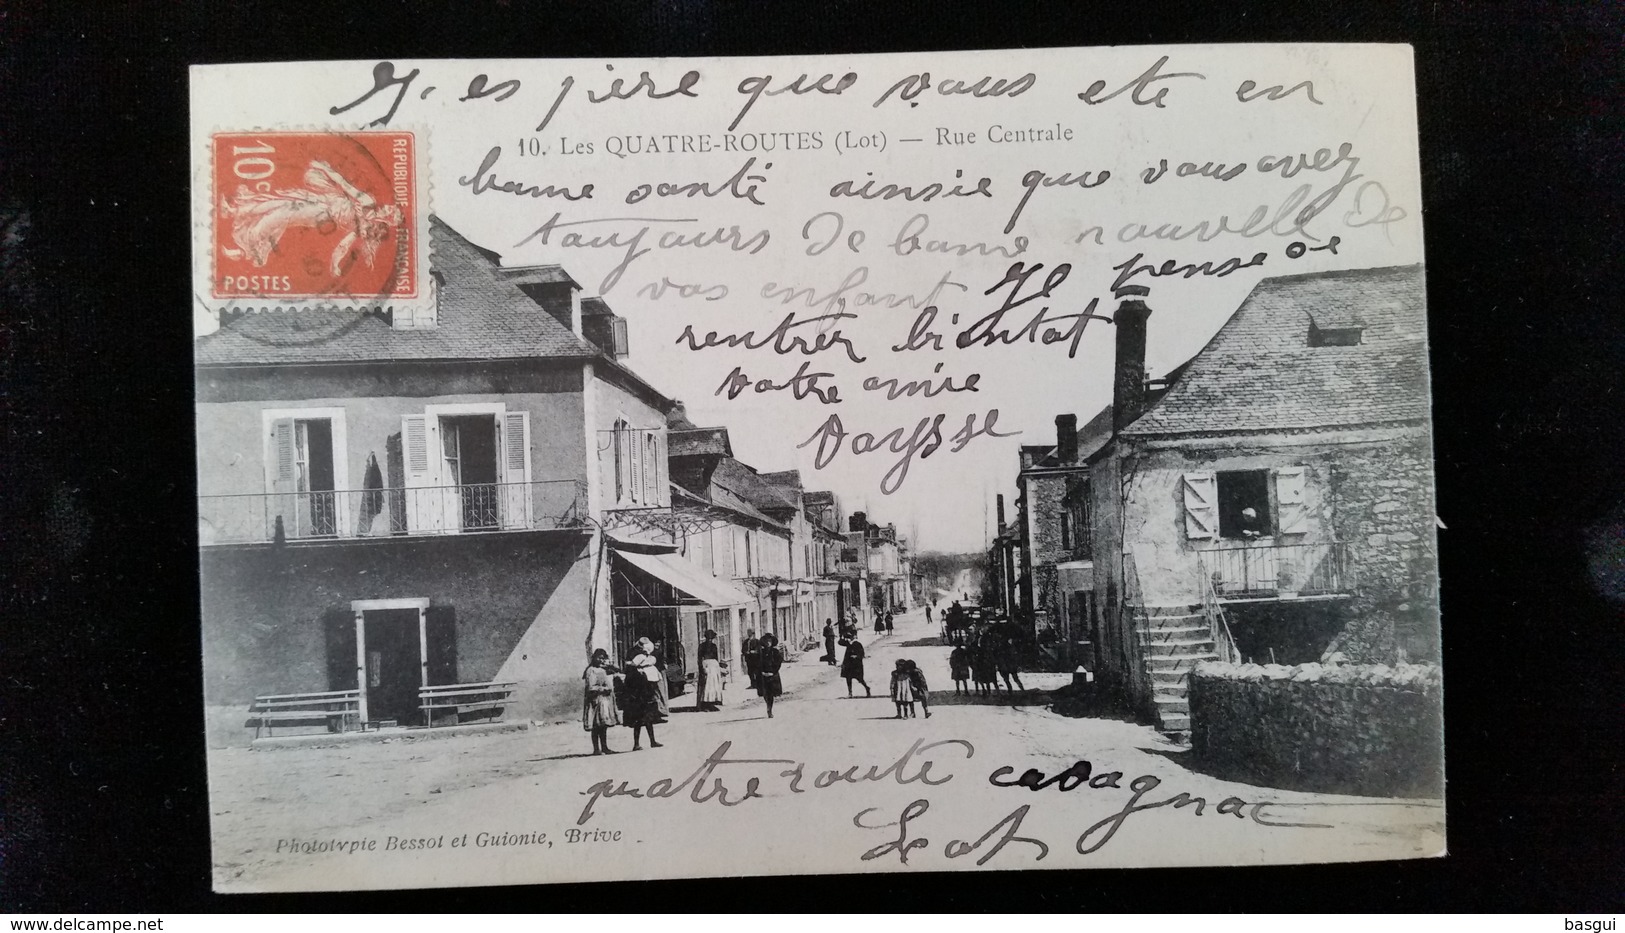 J. es père que vous ete en
10. Les QUATRE-ROUTES (Lot) — Rue Centrale
bonne santé ainsie que vous avez
toujours de bonne nouvelle de
vos enfant Je pense de
rentrer bientot
votre amie
Vaysse
10c
REPUBLIQUE FRANÇAISE
POSTES
quatre route cavagnac
Lot
Phototypie Bessot et Guionie, Brive
delcampe.net
basgui